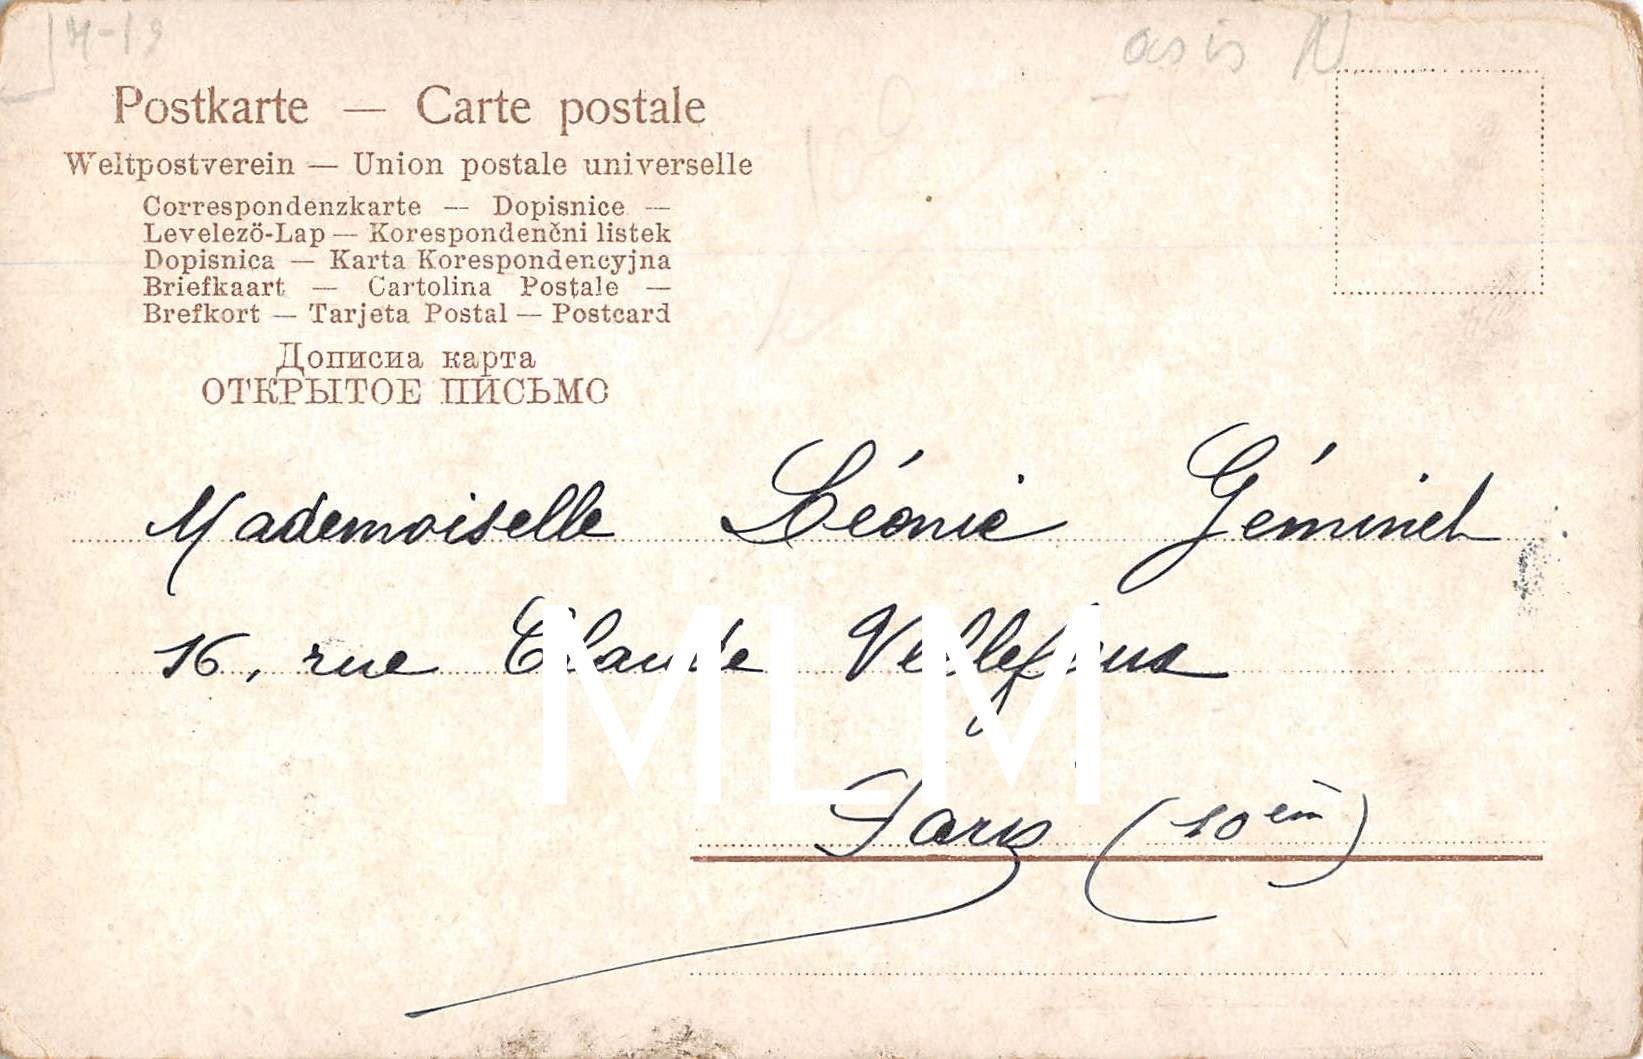 14-19
as is N
Postkarte — Carte postale
Weltpostverein — Union postale universelle
Correspondenzkarte — Dopisnice —
Levelezö-Lap — Korespondenčni listek
Dopisnica — Karta Korespondencyjna
Briefkaart — Cartolina Postale —
Brefkort — Tarjeta Postal — Postcard
Дописна карта
ОТКРЫТОЕ ПИСЬМО
Mademoiselle Léonie Géminel
16, rue Claude Vellefaux
MLM
Paris (10 èm)